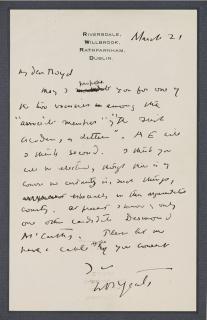 RIVERSDALE,
WILLBROOK,
RATHFARNHAM,
DUBLIN.
March 21
My dear
May I propose you for one of
the two vacancies among the
"associate members" of "The Irish
Academy of Letters". A E will
I think second. I think you
will be elected, though there is of
course no certainty in such things,
especially in this argumentative
country. At present I know of only
one other candidate Desmond
McCarthy. Please let me
have a cable if you consent
Yrs
W B Yeats